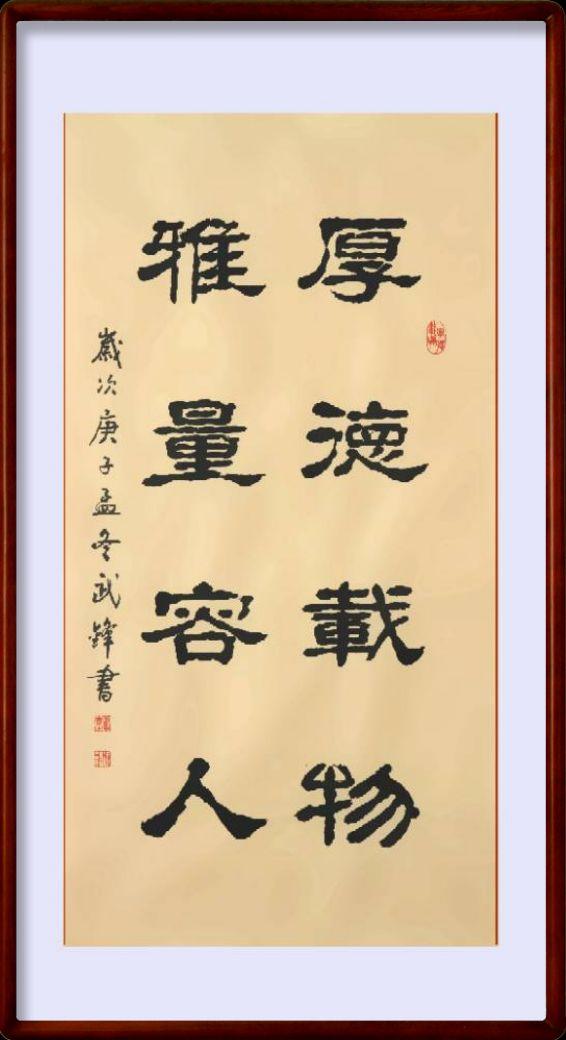 厚德載物
雅量容人
歲次庚子孟冬武鋒書